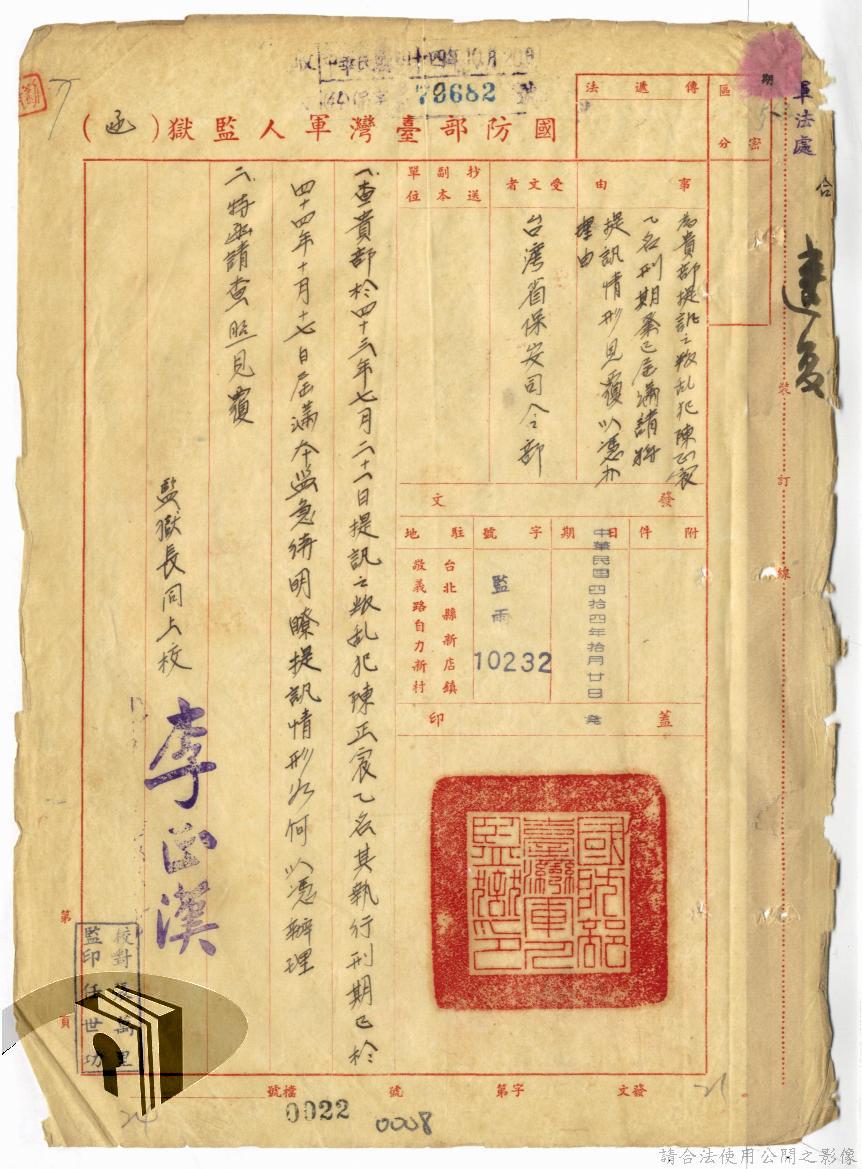 中華民國四十四年10月20日
79682 號
國防部臺灣軍人監獄(函)
軍法處
合
速复
傳遞法
區分
密
期
裝訂線
事由
為貴部提訊之叛乱犯陳正宸
乙名刑期業已屆滿請將
提訊情形見覆以憑办
理由
受文者
台灣省保安司令部
抄送副本單位
發文
附件
日期
中華民国四拾四年拾月廿日發
字號
監雨
10232
駐地
台北縣新店鎮
敬義路自力新村
蓋印
國防部臺灣軍人監獄印
一、查貴部於四十三年七月二十一日提訊之叛乱犯陳正宸乙名其執行刑期已於
四十四年十月十七日屆滿本監急待明瞭提訊情形如何以憑辦理
二、特函請查照見覆
監獄長同上校
李正漢
校對 萬里
監印任世功
第 頁
發文 字第 號
檔號
0022
0008
請合法使用公開之影像